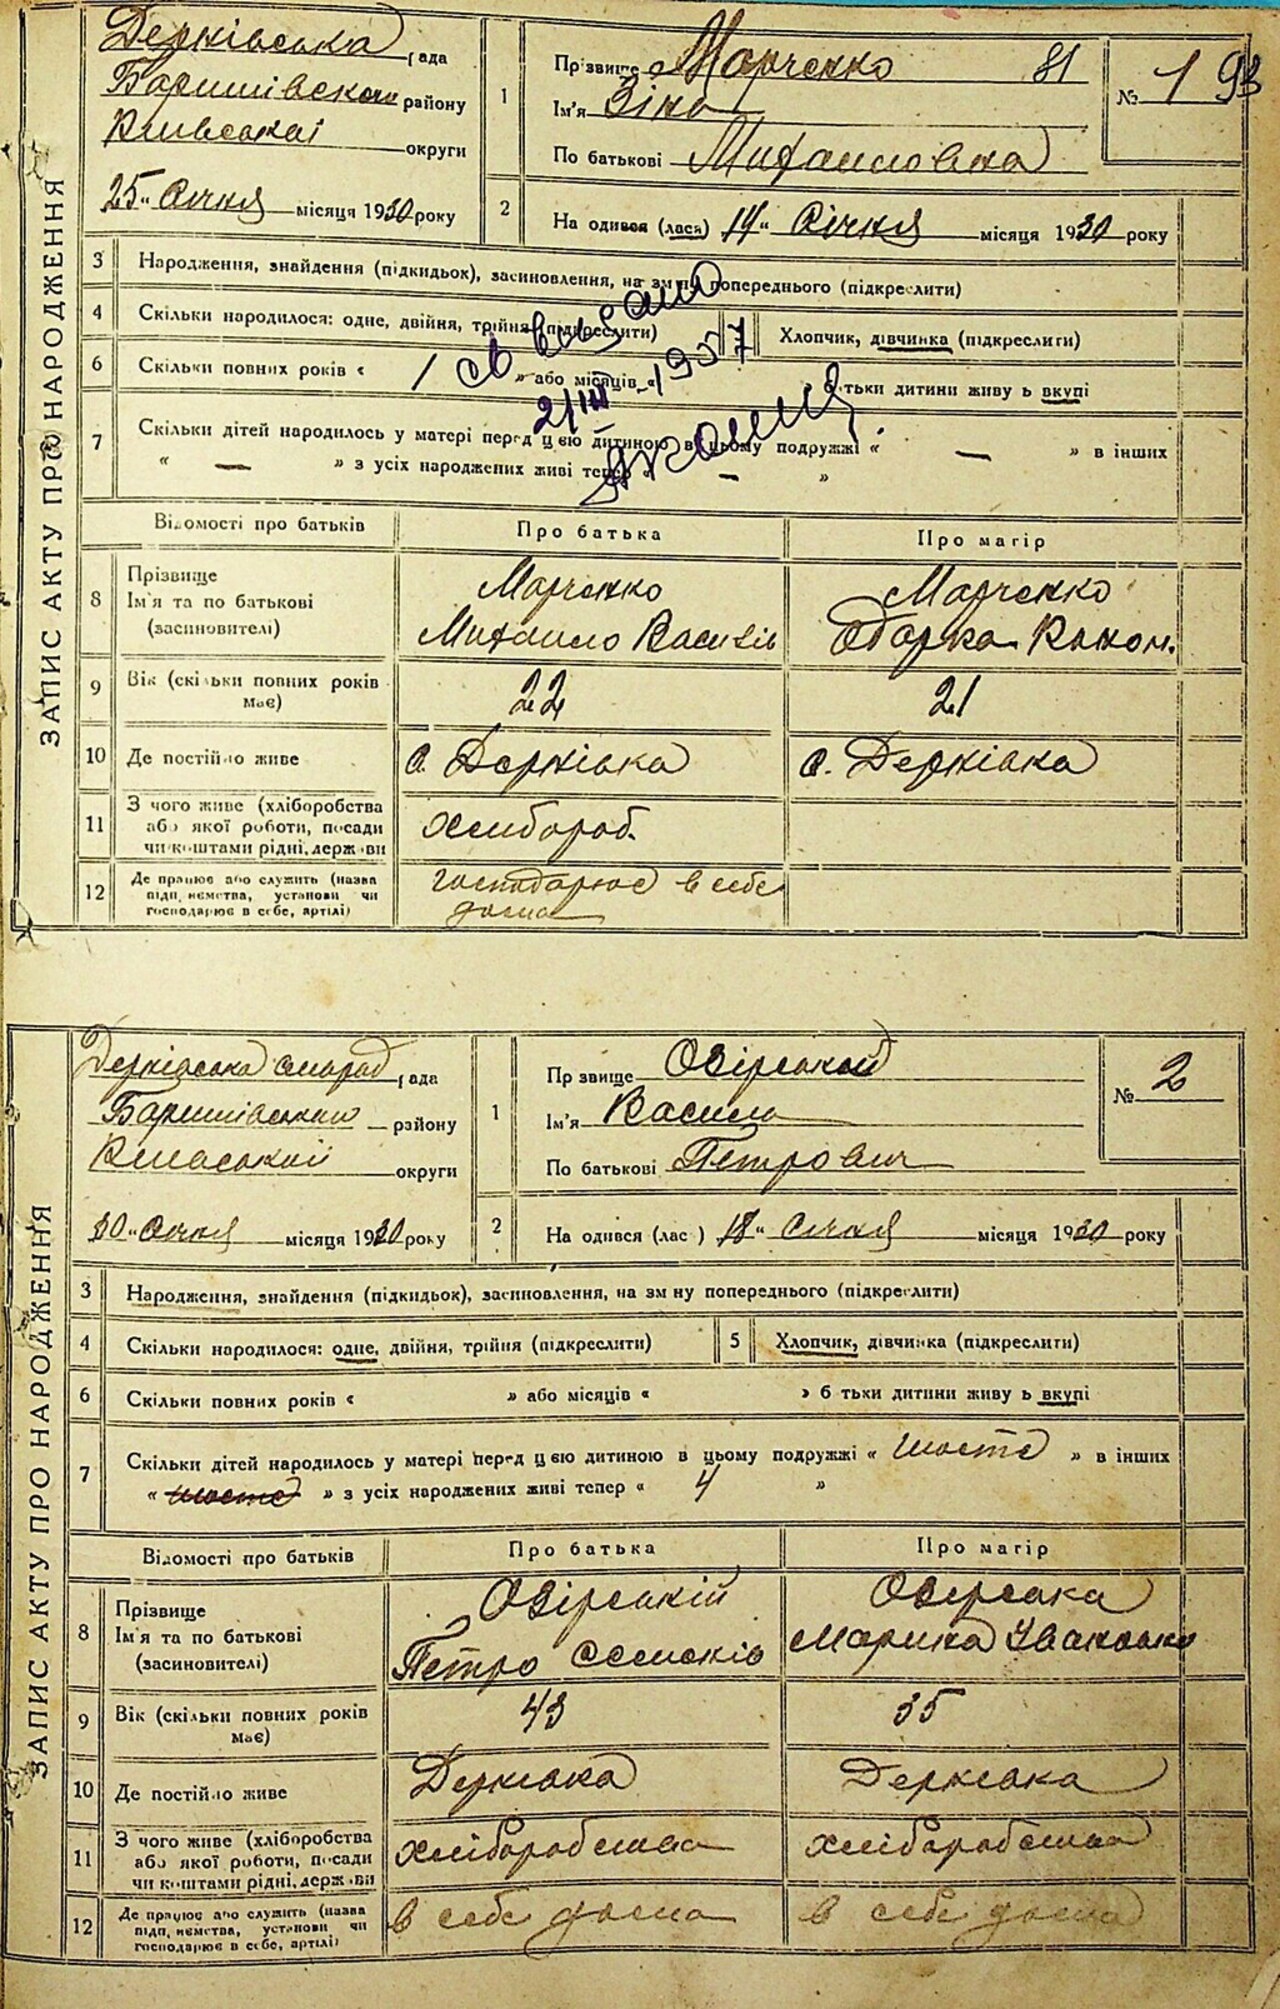 ЗАПИС АКТУ ПРО НАРОДЖЕННЯ
Дернівська рада
Баришівського району
Київської округи
25 " Січня місяця 1930 року
1 Прізвище Марченко 81
Ім'я Зіна
По батькові Михайловна
№ 1 93
2 На одився (лася) 14 " Січня місяця 1930 року
3 Народження, знайдення (підкидьок), засиновлення, на зм ну попереднього (підкреслити)
4 Скільки народилося: одне, двійня, трійня (підкреслити) Хлопчик, дівчинка (підкреслити)
6 Скільки повних років « » або місяців « б тьки дитини живу ь вкупі
21/III 1957
7 Скільки дітей народилось у матері перед цією дитиною в цьому подружжі « — » в інших
« — » з усіх народжених живі тепер « — »
Відомості про батьків Про батька Про матір
8 Прізвище Марченко Марченко
Ім'я та по батькові Михайло Васильів Одарка Никон.
(засиновителі)
9 Вік (скільки повних років має) 22 21
10 Де постійно живе с. Дернівка с. Дернівка
11 З чого живе (хліборобства Хлибороб.
або якої роботи, посади
чи коштами рідні, держави
12 Де працює або служить (назва господарює в себе
підп иємства, установи чи дома
господарює в себе, артілі)
ЗАПИС АКТУ ПРО НАРОДЖЕННЯ
Дернівська сільрад рада
Баришівський району
Київський округи
30 " Січня місяця 1930 року
1 Пр звище Озірський
Ім'я Василь
По батькові Петрович
№ 2
2 На одився (лас ) 18 " Січня місяця 1930 року
3 Народження, знайдення (підкидьок), засиновлення, на зм ну попереднього (підкреслити)
4 Скільки народилося: одне, двійня, трійня (підкреслити) 5 Хлопчик, дівчинка (підкреслити)
6 Скільки повних років « » або місяців « » б тьки дитини живу ь вкупі
7 Скільки дітей народилось у матері перед цією дитиною в цьому подружжі « шосте » в інших
« шосте » з усіх народжених живі тепер « 4 »
Відомості про батьків Про батька Про матір
8 Прізвище Озірській Озерська
Ім'я та по батькові Петро Семенів Марина Івановна
(засиновителі)
9 Вік (скільки повних років має) 43 35
10 Де постійно живе Дернівка Дернівка
11 З чого живе (хліборобства хліборобства хліборобства
або якої роботи, посади
чи коштами рідні, держ ви
12 Де працює або служить (назва в себе дома в себе дома
підп иємства, установи чи
господарює в себе, артілі)